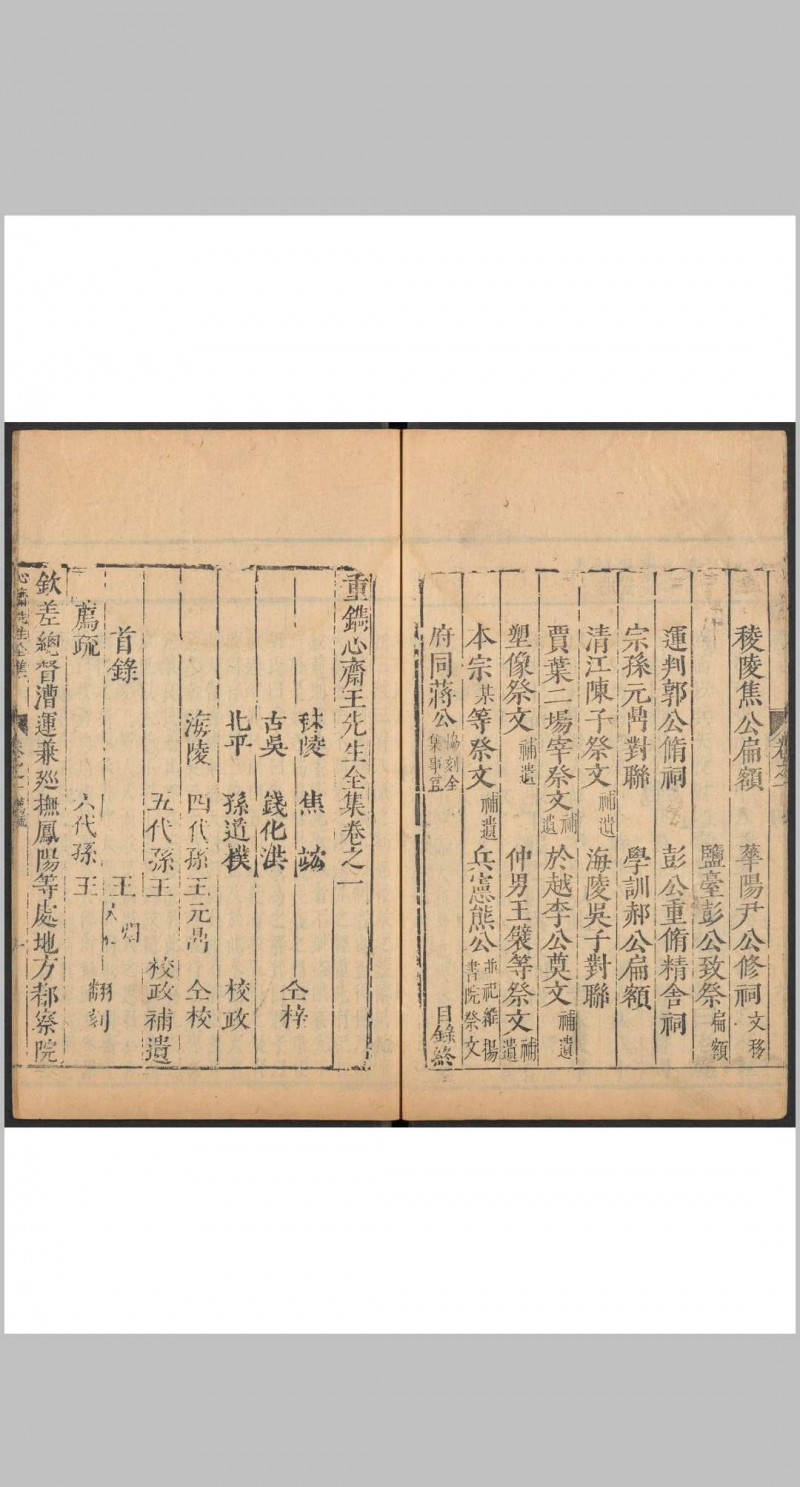 稜陵焦公扁額 華陽尹公修祠文移
鹽臺彭公致祭扁額
運判郭公脩祠 彭公重脩精舍祠
宗孫元鼎對聯 學訓郝公扁額
清江陳子祭文補遺 海陵吳子對聯
賈葉二場宰祭文補遺 於越李公奠文補遺
塑像祭文補遺 仲男王襞等祭文補遺
本宗某等祭文補遺 兵憲熊公並祀維揚書院祭文
府同蔣公協刻全集事宜 目錄終
重鐫心齋王先生全集卷之一
秣陵 焦竑
古吳 錢化洪 仝梓
北平 孫道樸 校政
海陵 四代孫王元鼎 仝校
五代孫王 校政補遺
首錄 王
薦疏 六代孫王 翻刻
欽差總督漕運兼廵撫鳳陽等處地方都察院
心齋先生全集